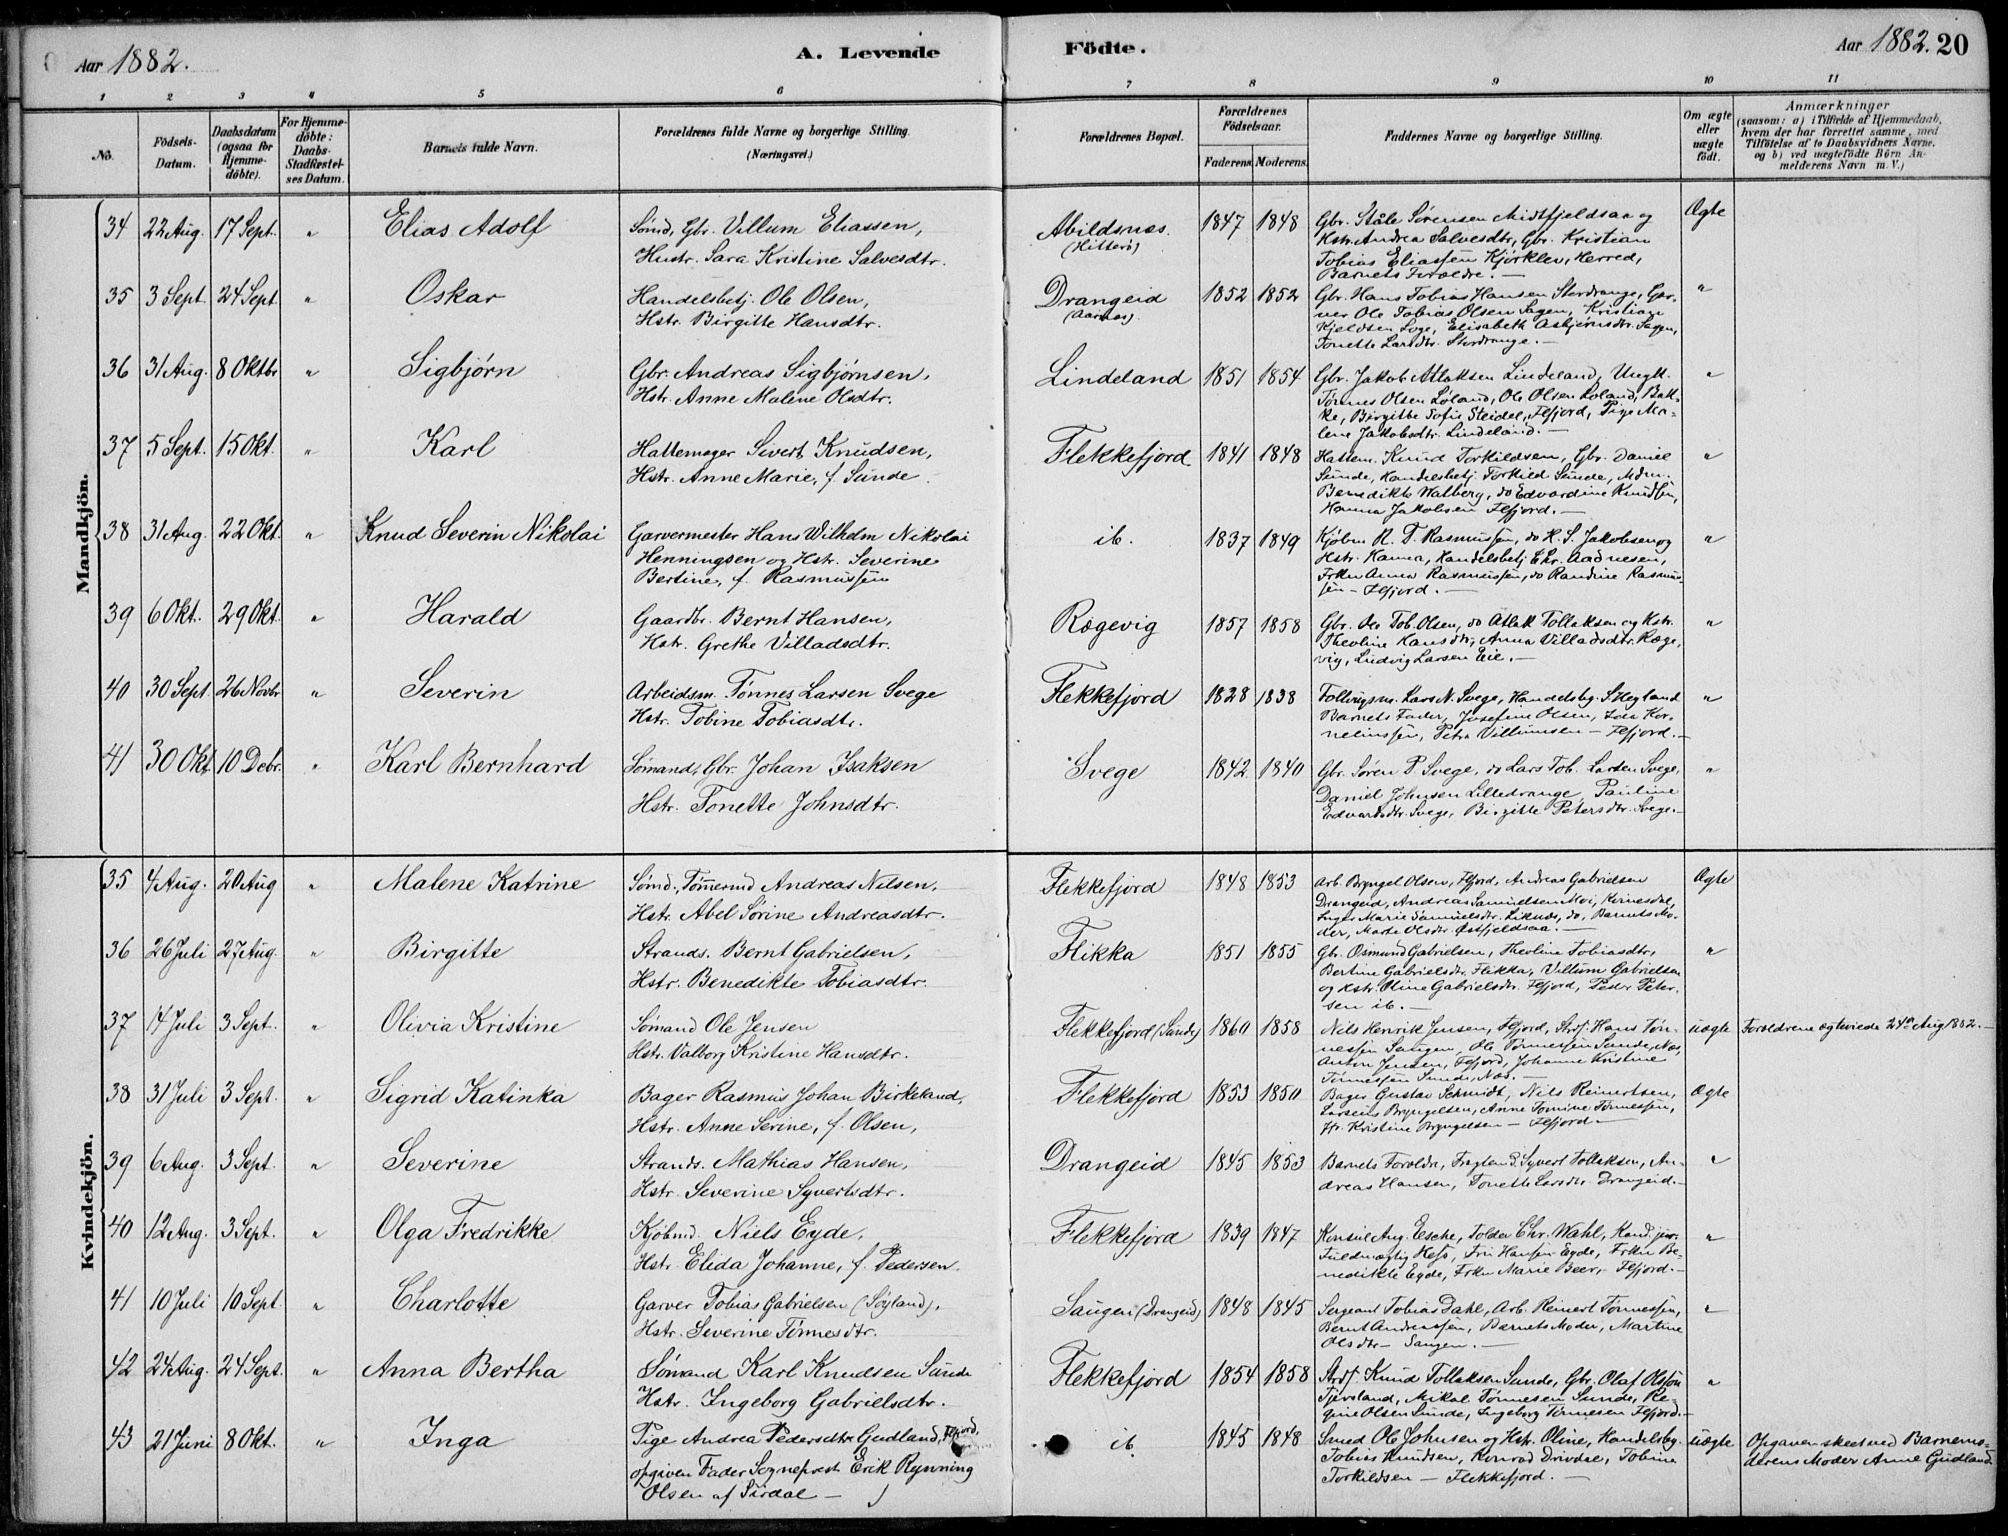 Aar 1882.
A. Levende
Födte.
Aar 1882. 20
1 2 3 4 5 6 7 8 9 10 11
No.
Födsels-
Datum.
Daabsdatum
(ogsaa for
Hjemme-
döbte).
For Hjemme-
döbte:
Daabs-
Stadfæstel-
ses Datum.
Barnets fulde Navn.
Forældrenes fulde Navne og borgerlige Stilling.
(Næringsvei.)
Forældrenes Bopæl.
Forældrenes
Födselsaar.
Faderens. Moderens.
Faddernes Navne og borgerlige Stilling.
Om ægte
eller
uægte
födt.
Anmærkninger
(saasom: a) i Tilfælde af Hjemmedaab,
hvem der har forrettet samme, med
Tilföielse af to Daabsvidners Navne,
og b) ved uægtefödte Börn An-
melderens Navn m. V.)
Mandkjön.
34 22 Aug. 17 Sept. " Elias Adolf Sømd, Gbr. Villum Eliassen, Abildsnæs. 1847 1848 Gbr. Ståle Sørensen Midtfjeldsaa og Ægte
Hustr. Sara Kristine Salvesdtr. (Hitterø) Hstr. Andrea Salvesdtr, Gbr. Kristian
Tobias Eliassen Kjørklev, Herred,
Barnets Forældre. —
35 3 Sept. 24 Sept " Oskar Handelsbetj. Ole Olsen, Drangeid 1852 1852 Gbr. Hans Tobias Hansen Stordrange, Gar- "
Hstr. Birgitte Hansdtr. ver Ole Tobias Olsen Sagen, Kristian
Kjeldsen Loge, Elisabeth Asbjørnsdtr.
Tonette Larsdtr. Stordrange. —
36 31 Aug. 8 Oktbr " Sigbjørn Gbr. Andreas Sigbjørnsen, Lindeland 1851 1854 Gbr. Jakob Atlaksen Lindeland, Ungk. "
Hstr. Anne Malene Olsdtr. Tønnes Olsen Loland, Ole Olsen Loland, Bak-
ke, Birgitte Sofie Steidel, Flfjord, Pige Ma-
lene Jakobsdtr. Lindeland. —
37 5 Sept. 15 Okt. " Karl Hattemager Sivert Knudsen, Flekkefjord 1841 1848 Hattem. Knud Torkildsen, Gbr. Daniel "
Hstr. Anne Marie, f. Sunde. Sunde, Handelsbetj. Torkild Sunde, Mdm.
Benedikte Walberg, do Edvardine Knudsen,
Hanna Jakobsen Flfjord. —
38 31 Aug. 22 Okt. " Knud Severin Nikolai Garvermester Hans Wilhelm Nikolai ib. 1837 1849 Kjøbm R. T. Rasmussen, do H. S. Jakobsen og "
Henningsen og Hstr. Severine Hstr. Hanna, Handelsbetj Chr. Aadnesen,
Bertine, f. Rasmussen Frkn Anna Rasmussen, do Randine Rasmus-
sen – Flfjord. —
39 6 Okt. 29 Okt. " Harald Gaardbr. Bernt Hansen, Rægevig 1857 1858 Gbr. Ole Tob. Olsen, do Atlak Tollaksen og Hstr. "
Hstr. Grethe Villadsdtr. Theoline Hansdtr, Anna Villadsdtr. Ræge-
vig, Ludvig Larsen Eie. —
40 30 Sept. 26 Novbr " Severin Arbeidsm. Tønnes Larsen Svege Flekkefjord 1828 1838 Lars N. Svege, Handelsbtj. S. Hegland "
Hstr. Tobine Tobiasdtr. Barnets Fader, Josefine Olsen, Ida Kor-
neliussen, Petra Villumsen – Flfjord. —
41 30 Okt. 10 Debr. " Karl Bernhard Sømand, Gbr. Johan Isaksen Svege 1842 1840 Gbr. Søren P. Svege, do Lars Tob. Larsen Svege, "
Hstr. Tonette Johnsdtr. Daniel Johnsen Lilledrange, Pauline
Edvardsdtr. Svege, Birgitte Petersdtr. Svege. —
Kvindekjön.
35 4 Aug. 20 Aug " Malene Katrine Sømd., Tømmermd Andreas Nilsen, Flekkefjord 1848 1853 Arb. Bryngel Olsen, Flfjord, Andreas Gabrielsen Ægte
Hstr. Abel Sørine Andreasdtr. Drangeid, Andreas Samuelsen Moi,
Inger Marie Samuelsdtr. Liknæs, do, Barnets Mo-
der, Marte Olsdtr. Østfjeldsaa. —
36 26 Juli 27 Aug. " Birgitte Strands. Bernt Gabrielsen, Flikka 1851 1855 Gbr. Osmund Gabrielsen, Theoline Tobiasdtr, "
Hstr. Benedikte Tobiasdtr. Bertine Gabrielsdtr. Flikka, Villum Gabrielsen
og Hstr. Oline Gabrielsdtr. Flfjord, Peder Peter-
sen ib. —
37 14 Juli 3 Sept. " Olivia Kristine Sømand Ole Jensen Flekkefjord (Sunde) 1860 1858 Nels Henrik Jensen, Flfjord, Strdf. Hans Tøn- uægte Forældrene ægteviede 24de Aug 1882. —
Hstr. Valborg Kristine Hansdtr. nessen Saugen, Ole Tønnessen Sunde, Næs,
Anton Jensen, Flfjord, Johanne Kristine
Tønnessen Sunde, Næs. —
38 31 Juli 3 Sept. " Sigrid Katinka Bager Rasmus Johan Birkeland, Flekkefjord 1853 1850 Bager Gustav Schmidt, Nils Reinertsen, Ægte
Hstr. Anne Serine, f. Olsen, Larseus Bryngelsen, Anne Tomine Tønnessen,
Fr. Kristine Bryngelsen – Flfjord —
39 6 Aug. 3 Sept. " Severine Strands. Mathias Hansen, Drangeid 1845 1853 Barnets Forældre, Syvert Tollaksen, An- "
Hstr. Severine Syvertsdtr. dreas Hansen, Tonette Larsdtr Drangeid. —
40 12 Aug. 3 Sept. " Olga Fredrikke Kjøbmd. Niels Eyde, Flekkefjord 1839 1847 Konsul Aug. Esche, Tolder Chr. Wahl, Kand. jur. "
Hstr. Elida Johanne, f. Pedersen. Fuldmægtig Hess, Fru Hansen Eyde, Frkn Be-
nedikte Eyde, Frkn Marie Beer, – Flfjord. —
41 10 Juli 10 Sept. " Charlotte Garver Tobias Gabrielsen (Søyland), Saugen (Drangeid) 1848 1845 Sergeant Tobias Dahl, Arb. Reinert Tønnessen, "
Hstr. Severine Tønnesdtr. Bernt Andreassen, Barnets Moder, Martine
Olsdtr – Saugen. —
42 24 Aug. 24 Sept. " Anna Bertha Sømand Karl Knudsen Sunde Flekkefjord 1854 1858 Strdf Knud Tollaksen Sunde, Gbr. Olaf Olsson "
Hstr. Ingeborg Gabrielsdtr. Tjersland, Mikal Tønnesen Sunde, Re-
gine Olsen Sunde, Ingeborg Tønnesen Flfjord. —
43 21 Juni 8 Okt. " Inga Pige Andrea Pedersdtr Gudland, Flfjord, ib 1845 1848 Smed Ole Johnsen og Hstr. Oline, Handelsbg. uægte Opgaven skeet ved Barnemo-
opgiven Fader Sogneprest Erik Rynning Tobias Knudsen, Konrad Drivdal, Tobine derens Moder Anne Gudland
Olsen af Sirdal — Torkildsen – Flekkefjord. —